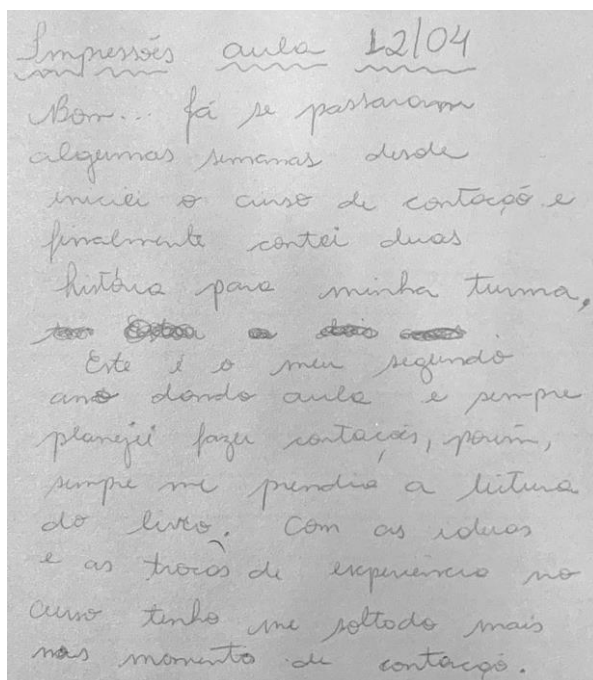 Impressões aula 12/04
Bom... já se passaram
algumas semanas desde
iniciei o curso de contação e
finalmente contei duas
história para minha turma.
Este é o meu segundo
ano dando aula e sempre
planejei fazer contações, porém,
sempre me prendia a leitura
do livro. Com as ideias
e as trocas de experiência no
curso tenho me soltado mais
nos momento de contação.